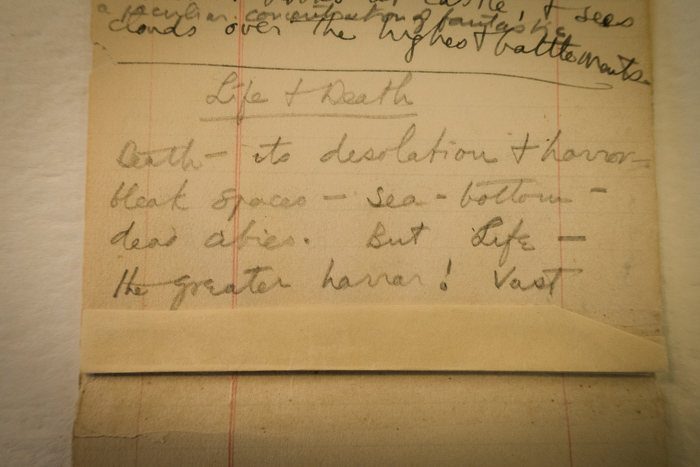 a peculiar concentration of fantastic
castle, & sees
clouds over the highest battlements.
Life & Death
Death — its desolation & horror —
bleak spaces — sea-bottom —
dead cities. But Life —
the greater horror! Vast